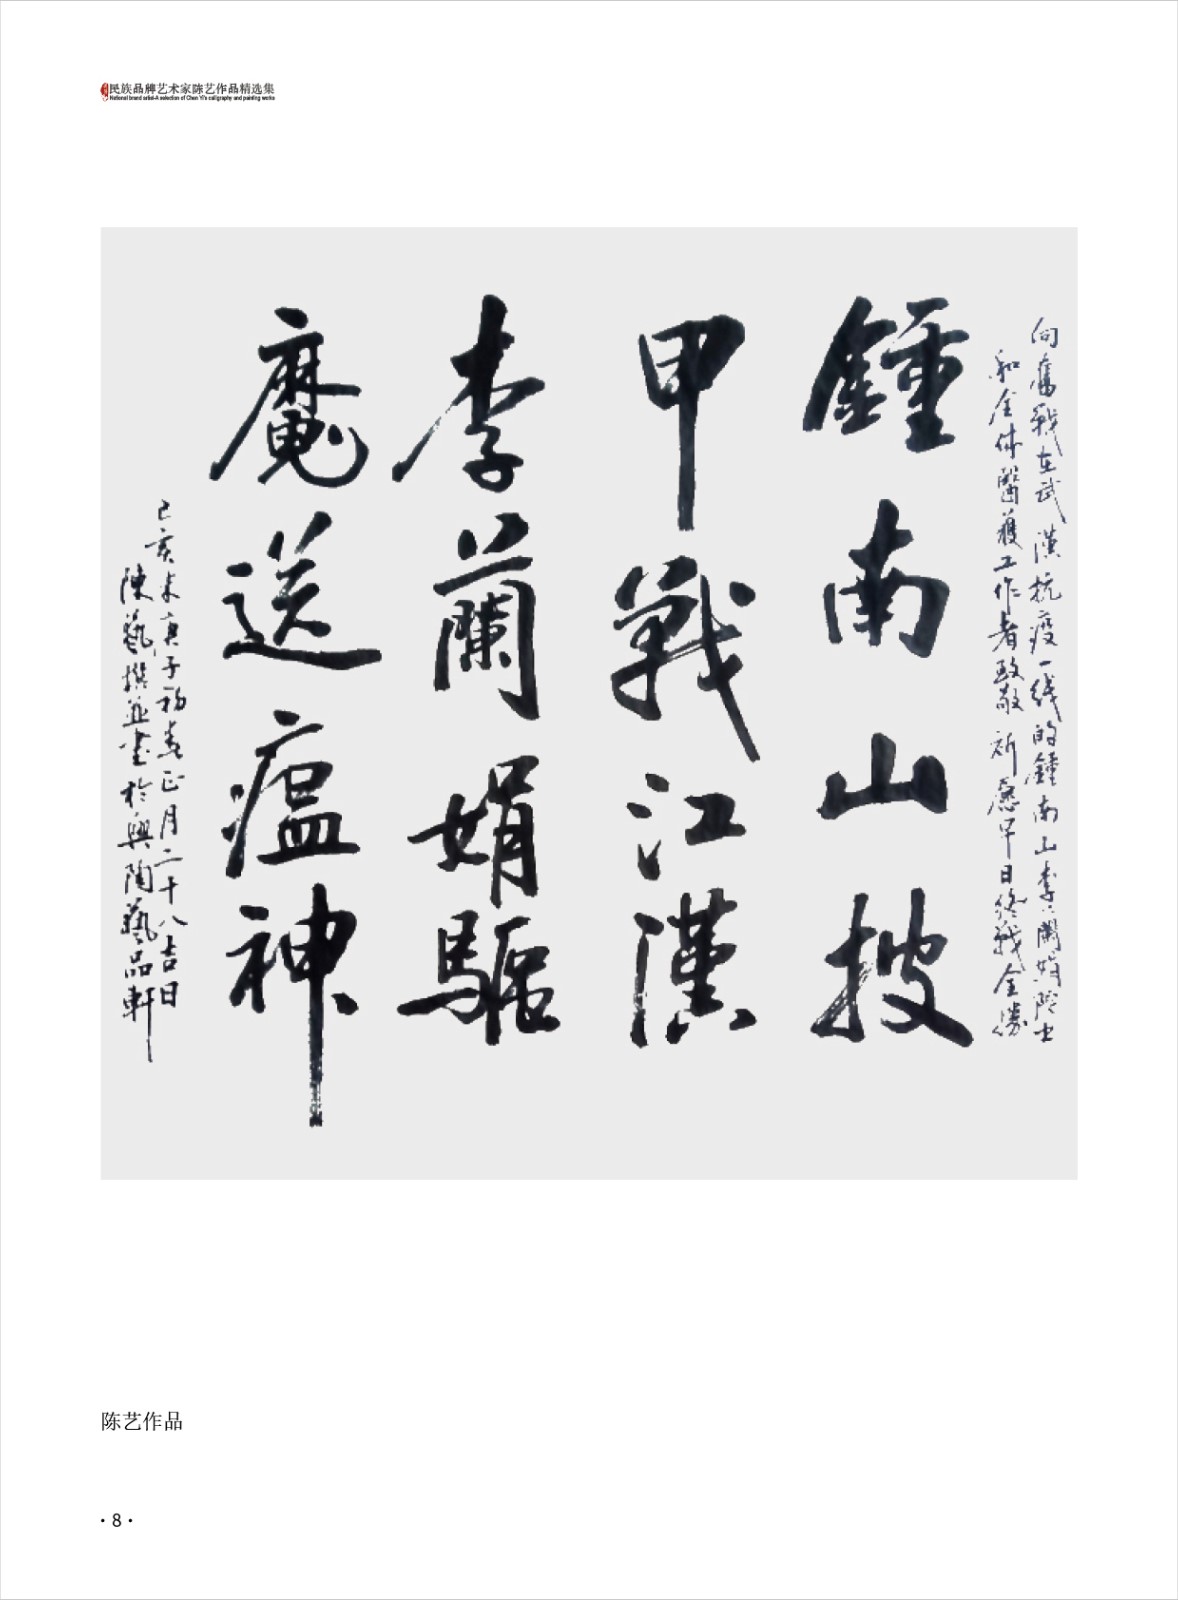 民族品牌艺术家陈艺作品精选集
National brand artist-A selection of Chen Yi's calligraphy and painting works
向奮戰在武漢抗疫一线的鍾南山李蘭娟院士
和全体醫護工作者致敬 祈愿早日终戰全勝
鍾南山披
甲戰江漢
李蘭娟驅
魔送瘟神
己亥末庚子初春正月二十八吉日
陳藝撰並書於興陶藝品軒
陈艺作品
·8·